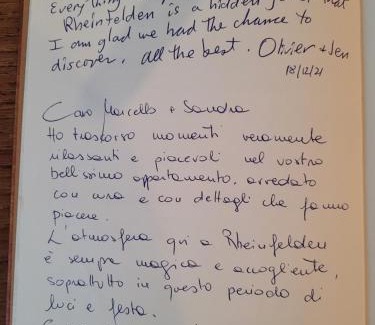 Everything
Rheinfelden is a hidden that
I am glad we had the chance to
discover, all the best. Olivier + Jen
18/12/21
Caro Marcello + Sandra
Ho trascorso momenti veramente
rilassanti e piacevoli nel vostro
bellissimo appartamento, arredato
con cura e con dettagli che fanno
piacere.
L'atmosfera qui a Rheinfelden
è sempre magica e accogliente,
soprattutto in questo periodo di
luci e festa.